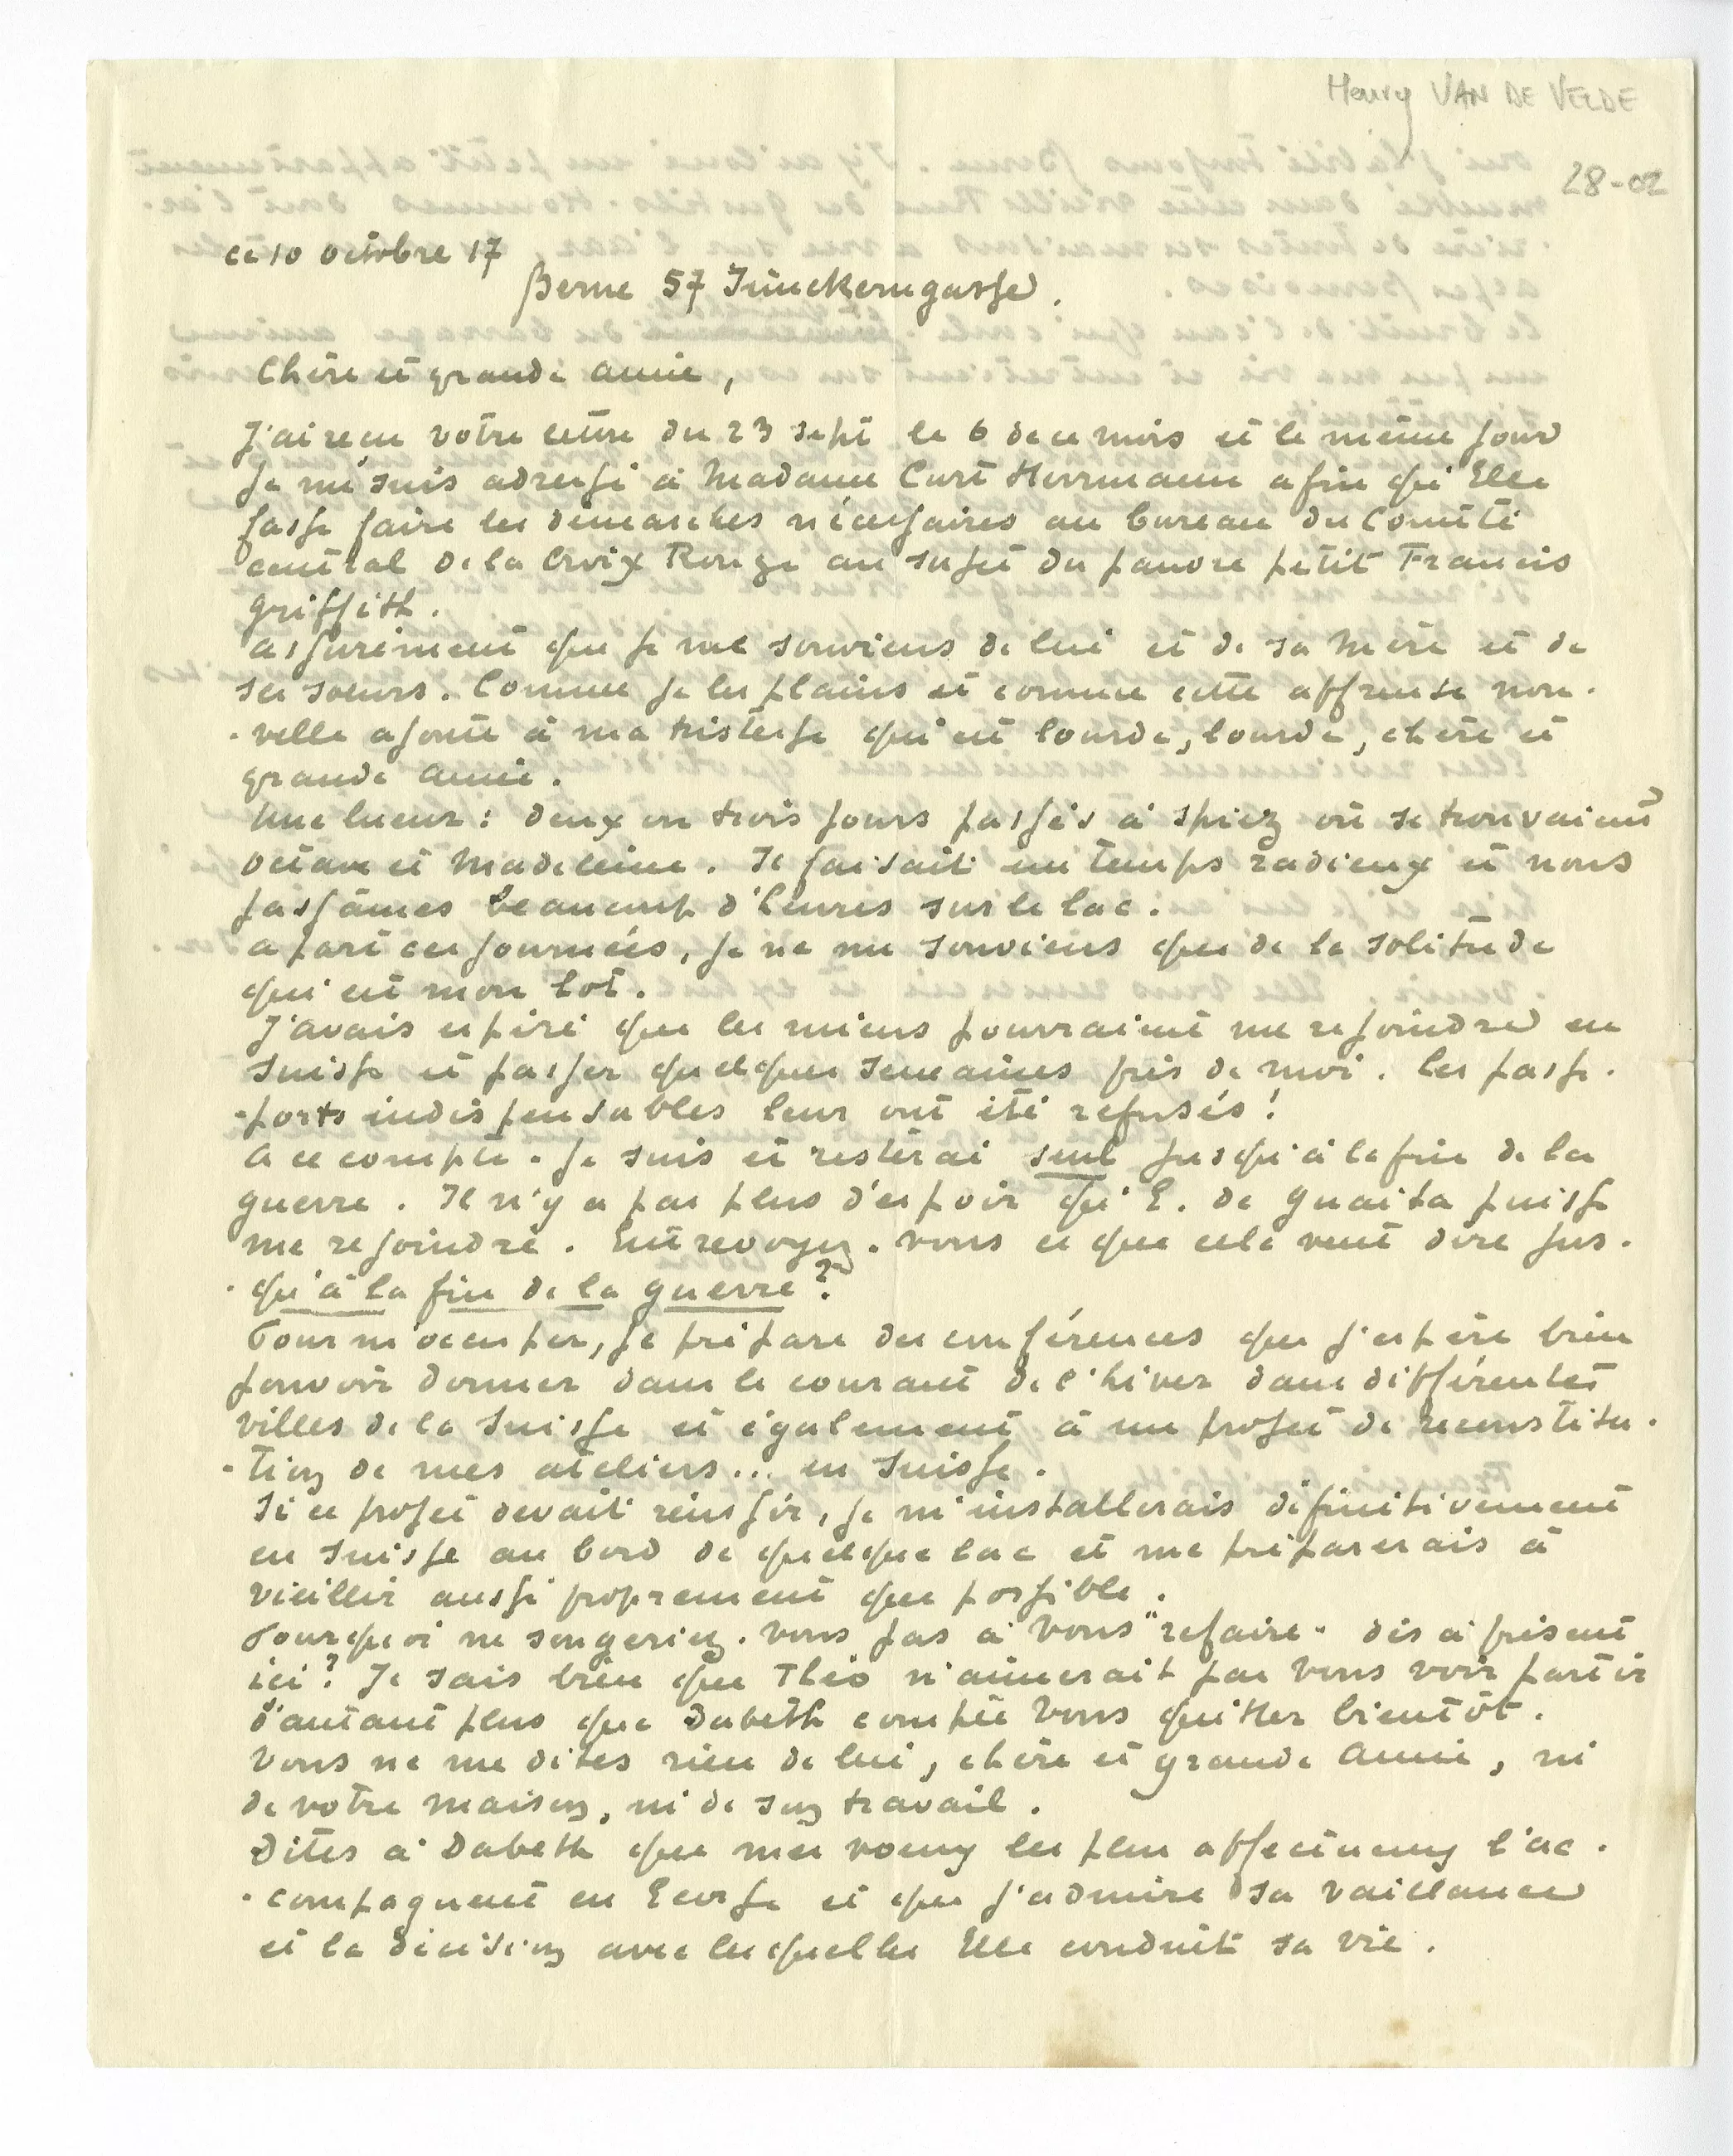 Henry VAN DE VELDE
28-02
ce 10 octobre 17
Berne 57 Junckerngasse.
Chère et grande amie,
J'ai reçu votre lettre du 23 sept le 6 de ce mois et le même jour
je me suis adressé à Madame Curt Herrmann afin qu'Elle
fasse faire les démarches nécessaires au bureau du Comité
central de la Croix Rouge au sujet du pauvre petit Francis
Griffith.
Assurément que je me souviens de lui et de sa mère et de
ses soeurs. Comme je les plains et comme cette affreuse nou-
-velle ajoute à ma tristesse qui est lourde, lourde, chère et
grande amie.
Une lueur : deux ou trois jours passés à Spiez où se trouvaient
Octave et Madeleine. Il faisait un temps radieux et nous
passâmes beaucoup d'heures sur le lac.
A part ces journées, je ne me souviens que de la solitude
qui est mon lot.
J'avais espéré que les miens pourraient me rejoindre en
Suisse et passer quelques semaines près de moi. Les passe-
-ports indispensables leur ont été refusés !
A ce compte - je suis et resterai seul jusqu'à la fin de la
guerre. Il n'y a pas plus d'espoir qu'E. de Guaita puisse
me rejoindre. Entrevoyez-vous ce que cela veut dire jus-
-qu'à la fin de la guerre ?
Pour m'occuper, je prépare des conférences que j'espère bien
pouvoir donner dans le courant de l'hiver dans différentes
villes de la Suisse et également à un projet de reconstitu-
-tion de mes ateliers... en Suisse.
Si ce projet devait réussir, je m'installerais définitivement
en Suisse au bord de quelque lac et me préparerais à
vieillir aussi proprement que possible.
Pourquoi ne songeriez-vous pas à vous "refaire" dès à présent
ici ? Je sais bien que Théo n'aimerait pas vous voir partir
d'autant plus que Dabeth compte vous quitter bientôt.
Vous ne me dites rien de lui, chère et grande Amie, ni
de votre maison, ni de son travail.
Dites à Dabeth que mes voeux les plus affectueux l'ac-
-compagnent en Ecosse et que j'admire sa vaillance
et la décision avec lesquelles Elle conduit sa vie.